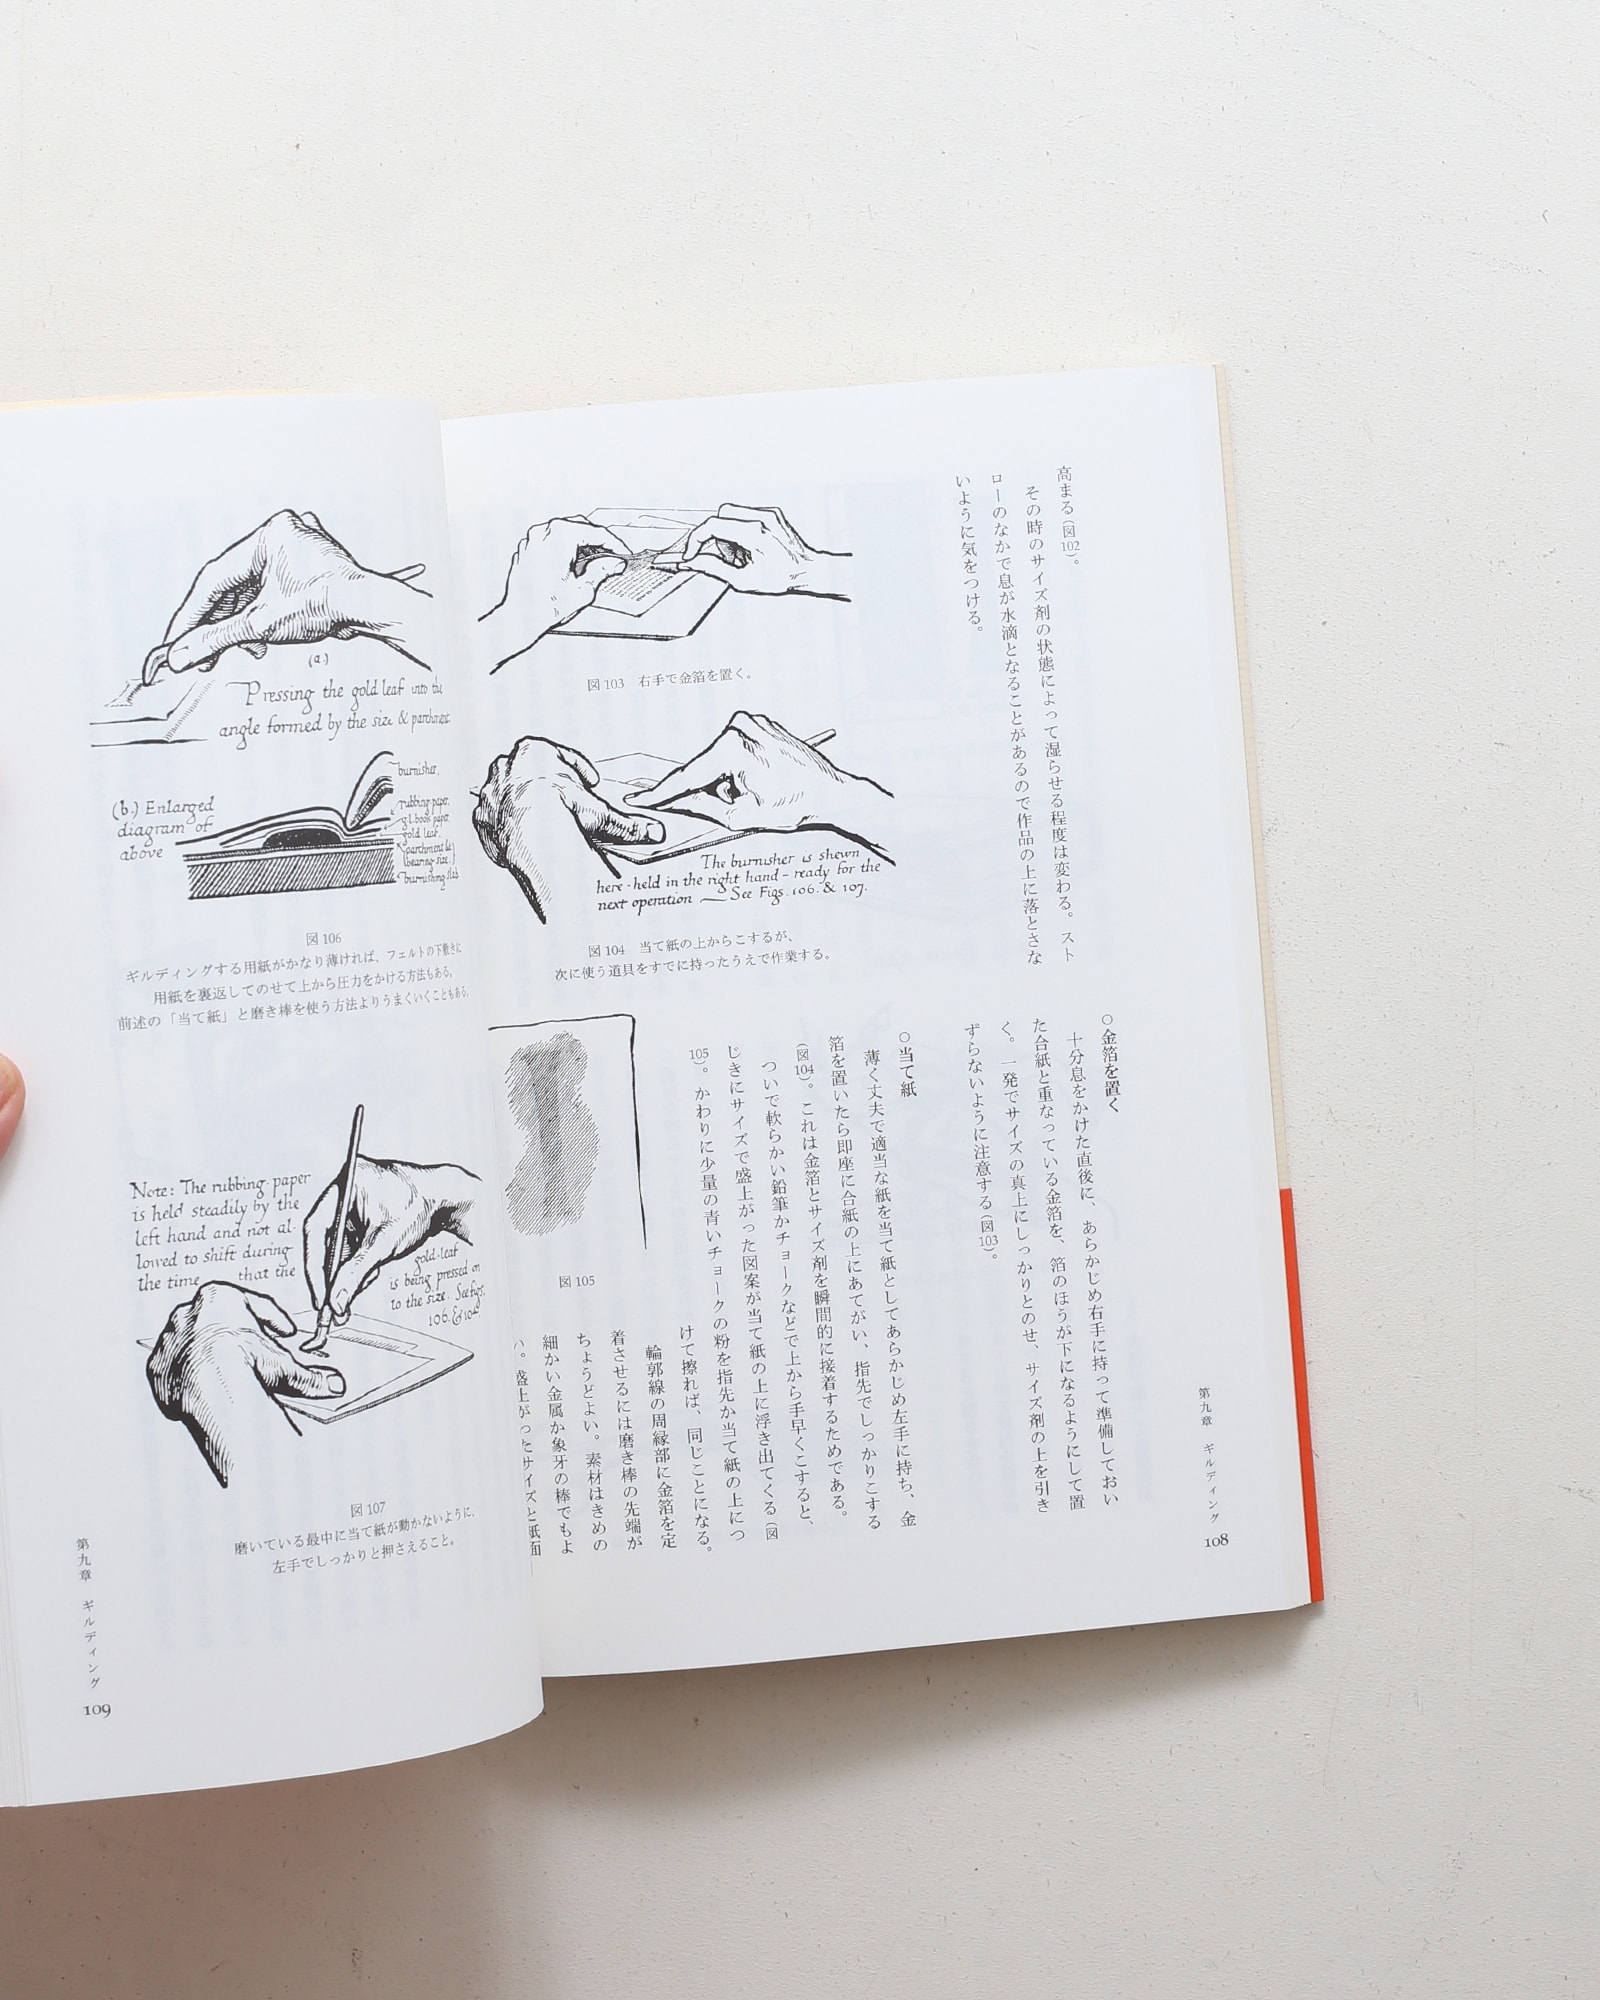 高まる（図102）。
その時のサイズ剤の状態によって湿らせる程度は変わる。スト
ローのなかで息が水滴となることがあるので作品の上に落とさな
いように気をつける。
○金箔を置く
十分息をかけた直後に、あらかじめ右手に持って準備しておい
た合紙と重なっている金箔を、箔のほうが下になるようにして置
く。一発でサイズの真上にしっかりとのせ、サイズ剤の上を引き
ずらないように注意する（図103）。
○当て紙
薄く丈夫で適当な紙を当て紙としてあらかじめ左手に持ち、金
箔を置いたら即座に合紙の上にあてがい、指先でしっかりこする
（図104）。これは金箔とサイズ剤を瞬間的に接着するためである。
ついで軟らかい鉛筆かチョークなどで上から手早くこすると、
じきにサイズで盛上がった図案が当て紙の上に浮き出てくる（図
105）。かわりに少量の青いチョークの粉を指先か当て紙の上につ
けて擦れば、同じことになる。
輪郭線の周縁部に金箔を定
着させるには磨き棒の先端が
ちょうどよい。素材はきめの
細かい金属か象牙の棒でもよ
い。盛上がったサイズと紙面
図103 右手で金箔を置く。
The burnisher is shewn
here-held in the right hand-ready for the
next operation — See Figs. 106. & 107.
図104 当て紙の上からこするが、
次に使う道具をすでに持ったうえで作業する。
図105
第九章 ギルディング
108
(a.)
Pressing the gold leaf into the
angle formed by the size & parchment
(b.) Enlarged
diagram of
above
burnisher.
rubbing paper.
g.l. book paper
gold leaf.
parchment &
(bearing size.)
burnishing slab
図106
ギルディングする用紙がかなり薄ければ、フェルトの下敷きに
用紙を裏返してのせて上から圧力をかける方法もある。
前述の「当て紙」と磨き棒を使う方法よりうまくいくこともある。
Note: The rubbing paper
is held steadily by the
left hand and not al-
lowed to shift during
the time that the
gold-leaf
is being pressed on
to the size. See figs.
106. & 104.
図107
磨いている最中に当て紙が動かないように、
左手でしっかりと押さえること。
第九章 ギルディング
109